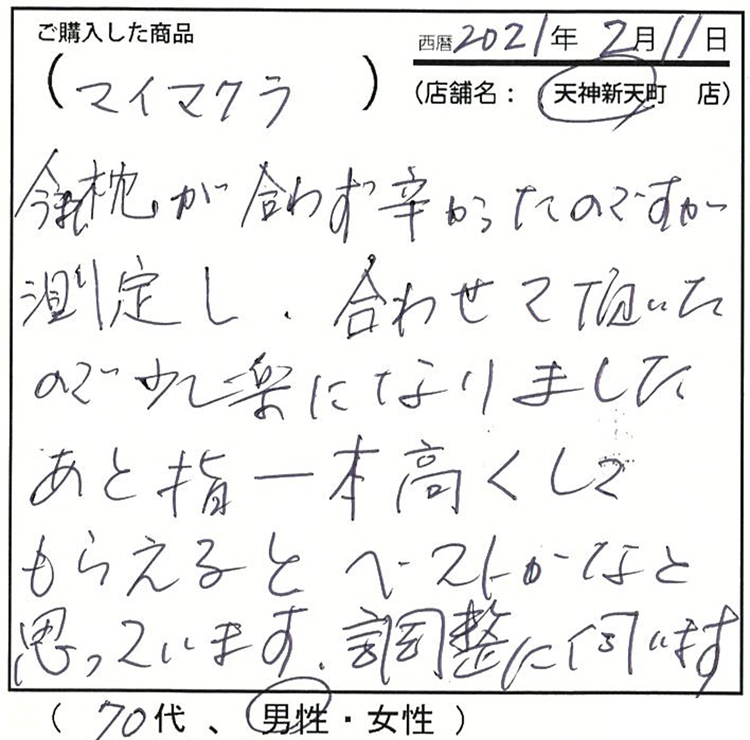 ご購入した商品
西暦2021年 2月11日
(マイマクラ)
(店舗名： 天神新天町 店)
今迄枕が合わず辛かったのですが
測定し、合わせて頂いた
ので少し楽になりました
あと指一本高くして
もらえるとベストかなと
思っています、調整に伺います
(70代、男性・女性)